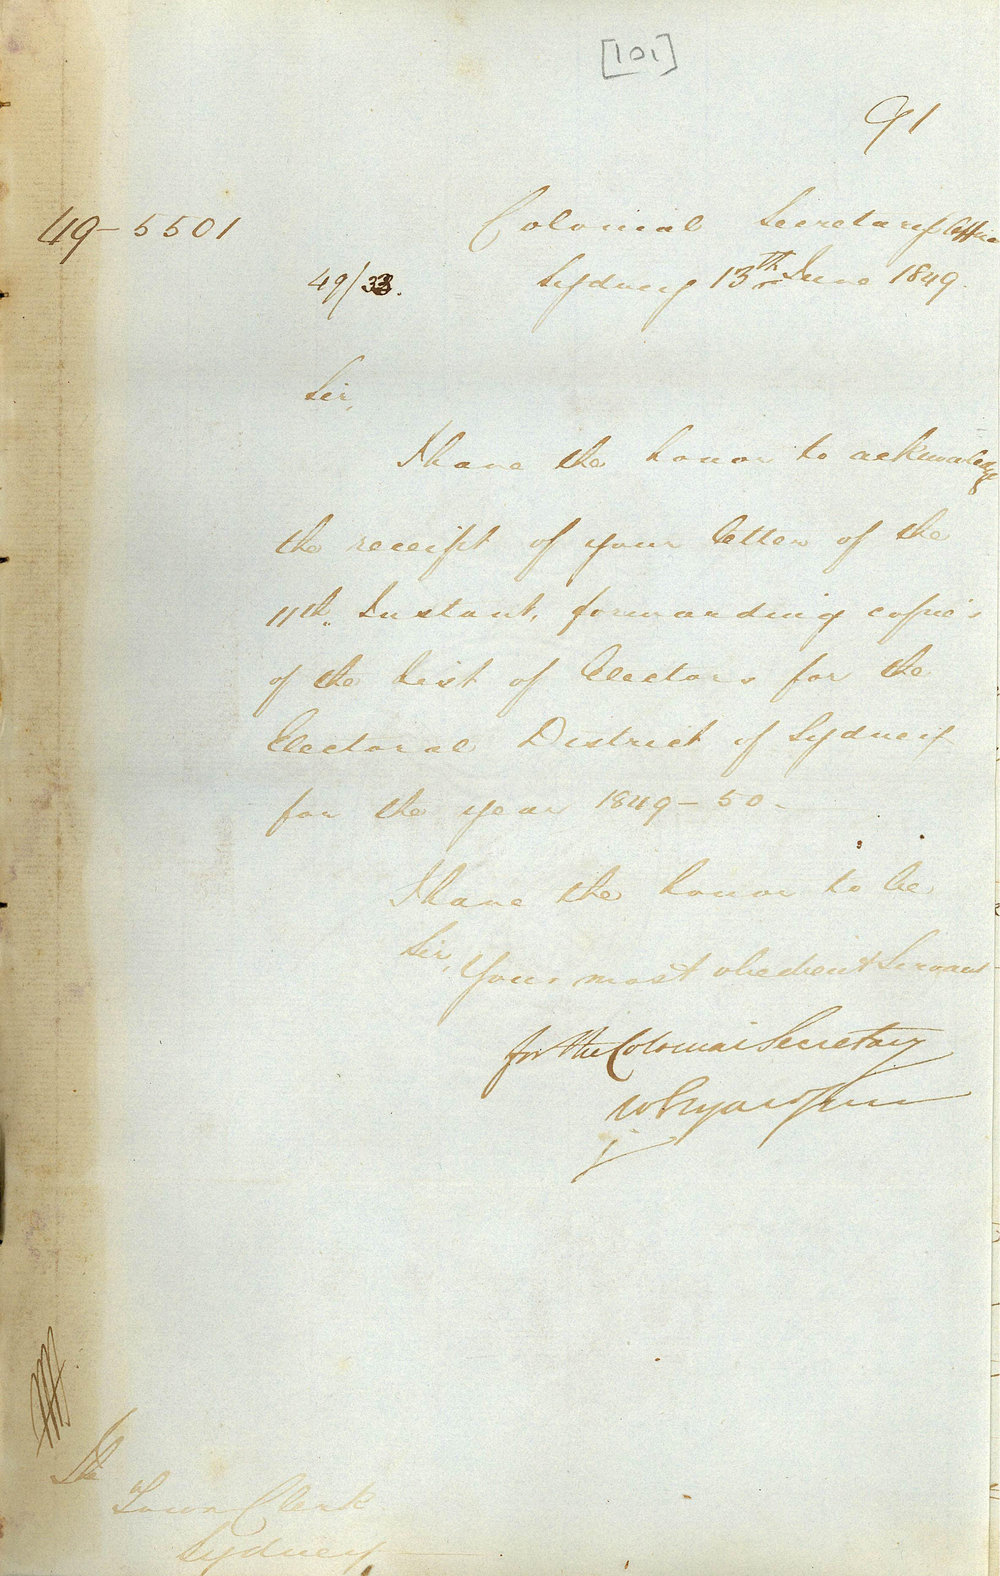 [101]
91
49-5501
Colonial Secretary's Office
49/33.
Sydney 13th June 1849.
Sir,
I have the honor to acknowledge
the receipt of your letter of the
11th Instant, forwarding copies
of the List of Electors for the
Electoral District of Sydney
for the year 1849-50-
I have the honor to be
Sir,
Your most obedient Servant
for the Colonial Secretary
The
Town Clerk
Sydney